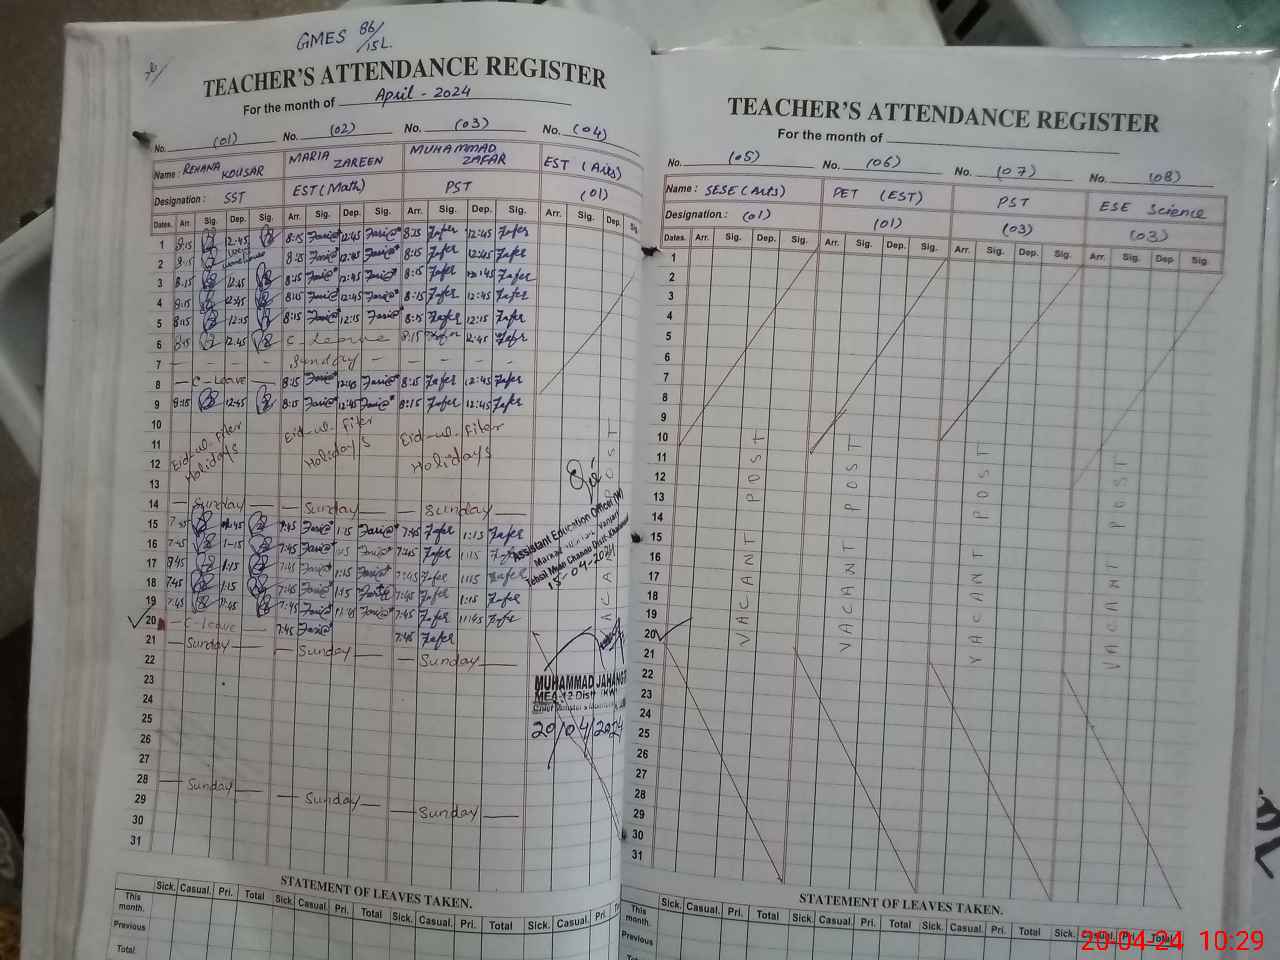 GMES 86/15L.
TEACHER'S ATTENDANCE REGISTER
For the month of April - 2024
No. (01) No. (02) No. (03) No. (04)
Name : REHANA KOUSAR MARIA ZAREEN MUHAMMAD ZAFAR EST (Arts)
Designation : SST EST (Math) PST (01)
Dates. Arr. Sig. Dep. Sig. Arr. Sig. Dep. Sig. Arr. Sig. Dep. Sig. Arr. Sig. Dep. Sig.
1 8:15 12:45 8:15 12:45 8:15 Zafer 12:45 Zafer
2 8:15 8:15 12:45 8:15 Zafer 12:45 Zafer
3 8:15 12:45 8:15 12:45 8:15 Zafer 12:45 Zafer
4 8:15 12:45 8:15 12:45 8:15 Zafer 12:45 Zafer
5 8:15 12:15 8:15 12:15 8:15 Zafer 12:15 Zafer
6 8:15 12:45 C - Leave 8:15 Zafer 12:45 Zafer
7 - - - - Sunday - - - - -
8 — C - Leave — 8:15 12:45 8:15 Zafer 12:45 Zafer
9 8:15 12:45 8:15 12:45 8:15 Zafer 12:45 Zafer
10
11 Eid-ul-Fiter Eid-ul-Fiter Eid-ul-Fiter
12 Holidays Holidays Holidays
13
14 — Sunday — — Sunday — — Sunday —
15 7:45 1:45 7:45 1:15 7:45 Zafer 1:15 Zafer
16 7:45 1-15 7:45 1:15 7:45 Zafer 1:15 Zafer
17 7:45 1:15 7:45 1:15 7:45 Zafer 1:15 Zafer
18 7:45 1:15 7:45 1:15 7:45 Zafer 1:15 Zafer
19 7:45 11:45 7:45 11:45 7:45 Zafer 11:45 Zafer
20 — C - Leave — 7:45 7:45 Zafer
21 — Sunday — — Sunday — — Sunday —
22
23
24
25
26
27
28 — Sunday — — Sunday — — Sunday —
29
30
31
VACANT POST
Assistant Education Officer (W)
15-04-2024
MUHAMMAD JAHANGIR
MEA-12 Distt (KWL)
20/04/2024
STATEMENT OF LEAVES TAKEN.
Sick. Casual. Pri. Total Sick. Casual. Pri. Total Sick. Casual. Pri. Total Sick. Casual. Pri.
This month.
Previous
Total.
TEACHER'S ATTENDANCE REGISTER
For the month of
No. (05) No. (06) No. (07) No. (08)
Name : SESE (Arts) PET (EST) PST ESE Science
Designation. : (01) (01) (03) (03)
Dates. Arr. Sig. Dep. Sig. Arr. Sig. Dep. Sig. Arr. Sig. Dep. Sig. Arr. Sig. Dep. Sig.
1
2
3
4
5
6
7
8
9
10
11
12
13
14
15
16
17
18
19
20
21
22
23
24
25
26
27
28
29
30
31
VACANT POST
VACANT POST
VACANT POST
VACANT POST
STATEMENT OF LEAVES TAKEN.
Sick. Casual. Pri. Total Sick. Casual. Pri. Total Sick. Casual. Pri. Total Sick. Casual. Pri. Total
This month.
Previous
20-04-24 10:29